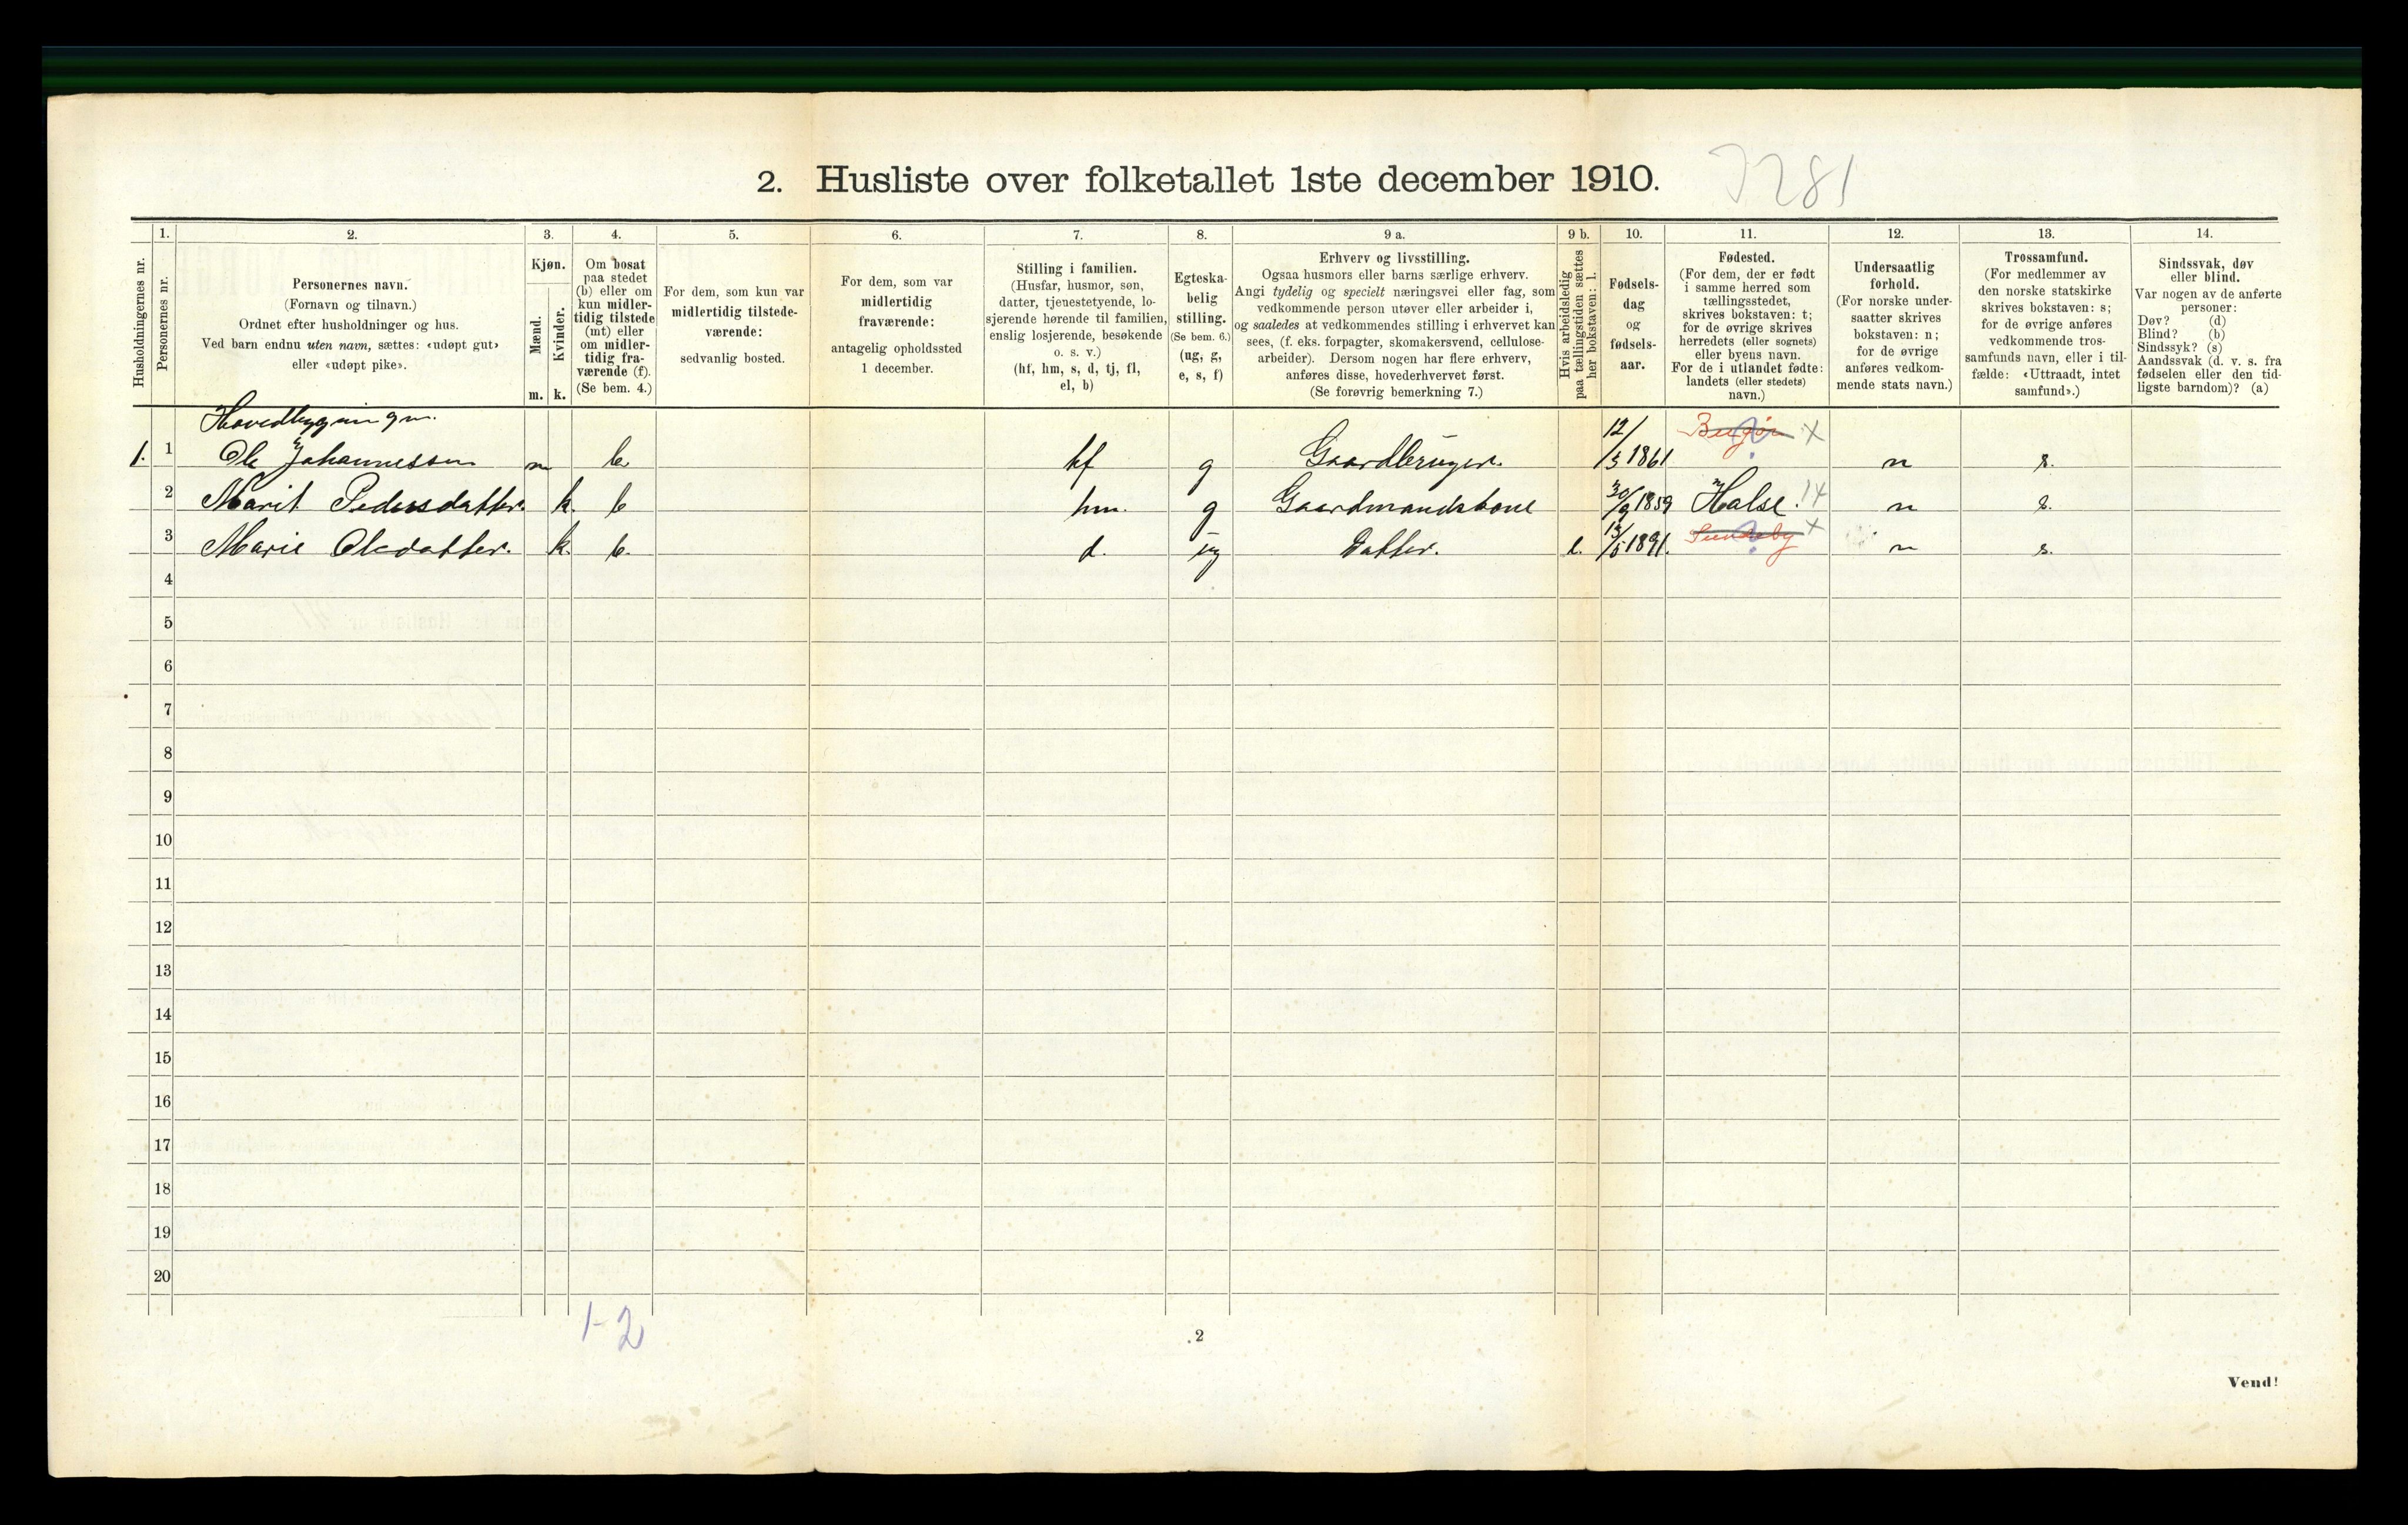 2. Husliste over folketallet 1ste december 1910.
Husholdningernes nr.
1.
Personernes nr.
2.
Personernes navn.
(Fornavn og tilnavn.)
Ordnet efter husholdninger og hus.
Ved barn endnu uten navn, sættes: «udøpt gut»
eller «udøpt pike».
3.
Kjøn.
Mænd.
Kvinder.
m. k.
4.
Om bosat
paa stedet
(b) eller om
kun midler-
tidig tilstede
(mt) eller
om midler-
tidig fra-
værende (f).
(Se bem. 4.)
5.
For dem, som kun var
midlertidig tilstede-
værende:
sedvanlig bosted.
6.
For dem, som var
midlertidig
fraværende:
antagelig opholdssted
1 december.
7.
Stilling i familien.
(Husfar, husmor, søn,
datter, tjenestetyende, lo-
sjerende hørende til familien,
enslig losjerende, besøkende
o. s. v.)
(hf, hm, s, d, tj, fl,
el, b)
8.
Egteska-
belig
stilling.
(Se bem. 6.)
(ug, g,
e, s, f)
9 a.
Erhverv og livsstilling.
Ogsaa husmors eller barns særlige erhverv.
Angi tydelig og specielt næringsvei eller fag, som
vedkommende person utøver eller arbeider i,
og saaledes at vedkommendes stilling i erhvervet kan
sees, (f. eks. forpagter, skomakersvend, cellulose-
arbeider). Dersom nogen har flere erhverv,
anføres disse, hovederhvervet først.
(Se forøvrig bemerkning 7.)
9 b.
Hvis arbeidsledig
paa tællingstiden sættes
her bokstaven: l.
10.
Fødsels-
dag
og
fødsels-
aar.
11.
Fødested.
(For dem, der er født
i samme herred som
tællingsstedet,
skrives bokstaven: t;
for de øvrige skrives
herredets (eller sognets)
eller byens navn.
For de i utlandet fødte:
landets (eller stedets)
navn.)
12.
Undersaatlig
forhold.
(For norske under-
saatter skrives
bokstaven: n;
for de øvrige
anføres vedkom-
mende stats navn.)
13.
Trossamfund.
(For medlemmer av
den norske statskirke
skrives bokstaven: s;
for de øvrige anføres
vedkommende tros-
samfunds navn, eller i til-
fælde: «Uttraadt, intet
samfund».)
14.
Sindssvak, døv
eller blind.
Var nogen av de anførte
personer:
Døv? (d)
Blind? (b)
Sindssyk? (s)
Aandssvak (d. v. s. fra
fødselen eller den tid-
ligste barndom)? (a)
Hovedbygningen.
1. 1 Ole Johannessen m b hf g Gaardbruger. 12/5 1861 n s.
2 Marit Pedersdatter. k. b hm. g Gaardmandskone 30/9 1859 Halse. n s.
3 Marie Olsdatter. k. b. d. ug Datter. l. 13/5 1891. n s.
4
5
6
7
8
9
10
11
12
13
14
15
16
17
18
19
20
1-2
2
Vend!